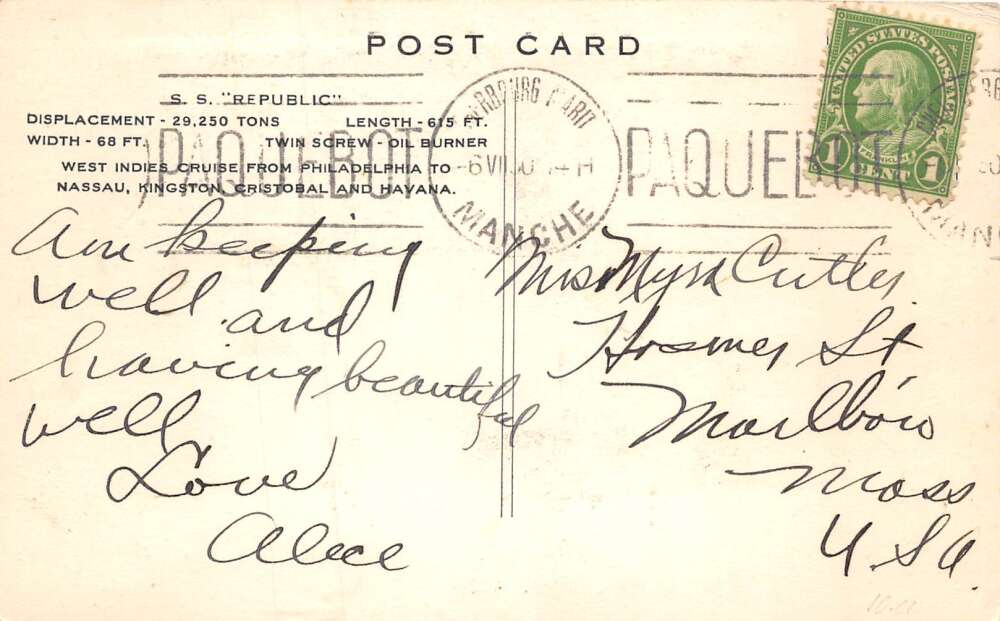 POST CARD
S. S. "REPUBLIC"
DISPLACEMENT - 29,250 TONS LENGTH - 615 FT.
WIDTH - 68 FT. TWIN SCREW - OIL BURNER
WEST INDIES CRUISE FROM PHILADELPHIA TO
NASSAU, KINGSTON, CRISTOBAL AND HAVANA.
PAQUEBOT
MANCHE
PAQUEBOT
UNITED STATES POSTAGE
FRANKLIN
1 CENT 1
Am keeping
well and
having beautiful
well
Love
Alice
Mrs Myra Cutler
Hosmer St
Marlboro
Mass
U.S.A.